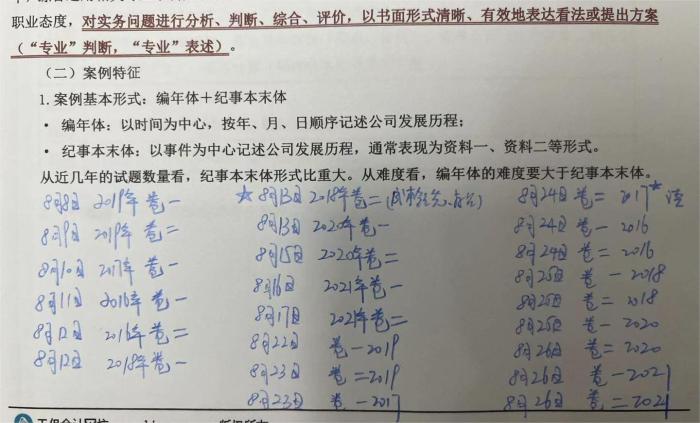 职业态度，对实务问题进行分析、判断、综合、评价，以书面形式清晰、有效地表达看法或提出方案
（“专业”判断，“专业”表述）。
（二）案例特征
1. 案例基本形式：编年体＋纪事本末体
• 编年体：以时间为中心，按年、月、日顺序记述公司发展历程；
• 纪事本末体：以事件为中心记述公司发展历程，通常表现为资料一、资料二等形式。
从近几年的试题数量看，纪事本末体形式比重大。从难度看，编年体的难度要大于纪事本末体。
8月8日 2019年卷一
8月9日 2019年卷二
8月10日 2017年卷一
8月11日 2016年卷一
8月12日 2016年卷二
8月12日 2018年卷一
★8月13日 2018年卷二
8月13日 2020年卷一
8月15日 2020年卷二
8月16日 2021年卷一
8月17日 2021年卷二
8月22日 卷一2019
8月23日 卷二2019
8月23日 卷一2017
8月24日 卷二 2017★
8月24日 卷一 2016
8月24日 卷二 2016
8月25日 卷一2018
8月25日 卷二2018
8月25日 卷一2020
8月26日 卷二2020
8月26日 卷一2021
8月26日 卷二2021